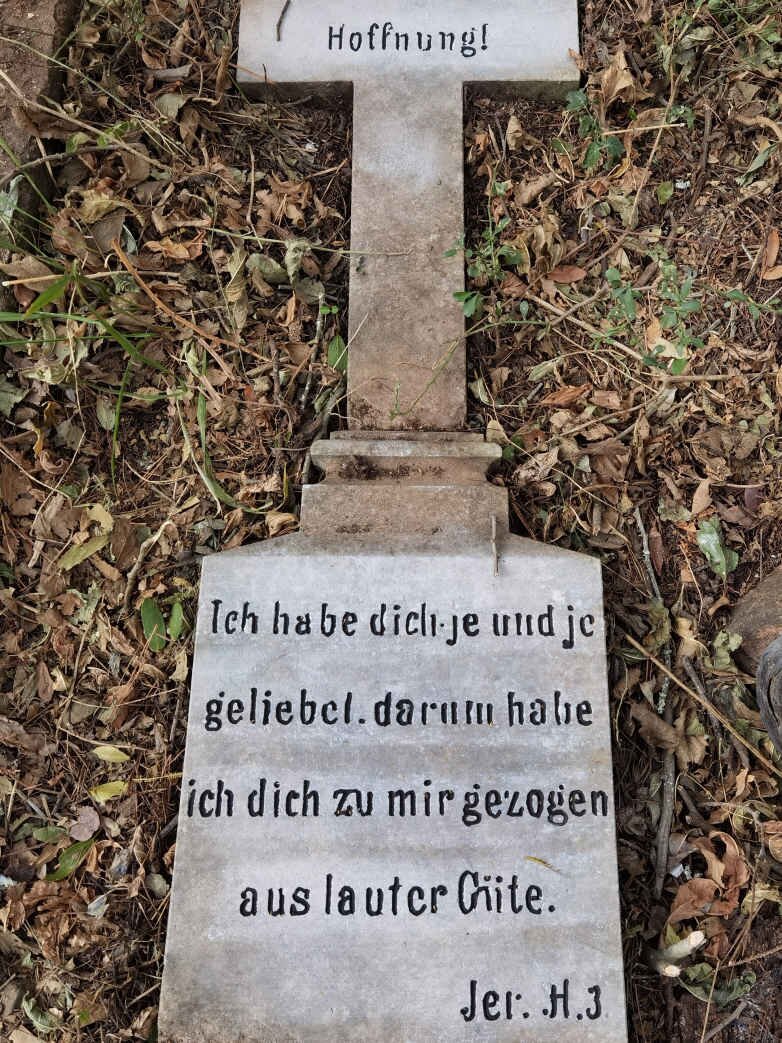 Hoffnung!
Ich habe dich je und je
geliebet. darum habe
ich dich zu mir gezogen
aus lauter Güte.
Jer. H. 3